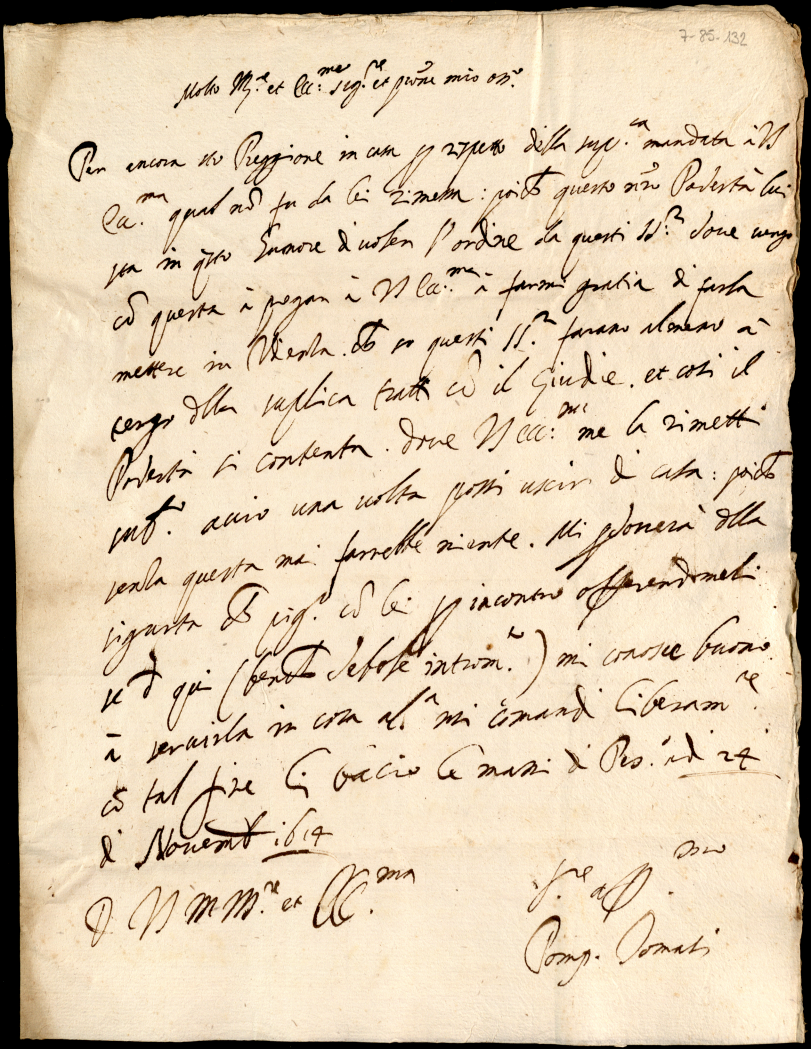 7-85-132
Molto Mag.re et Ecc.mo sig.re et p̄rōne mio oss.o
Per ancora sto Preggione in casa p rispetto della sup.ca mandata à VS
Ecc.ma qual nō fu da lei rimessa: poichè questo nr̄o Podestà lui
sta in q̄sto humore di voler l'ordine da questi SS.ri dove vengo
cō questa à pregar à VS Ecc.ma à farmi gratia di farla
mettere in che so questi SS.ri farano almeno à
tergo dlla suplica tratti cō il Giudice. et così il
Podestà si contenta. dove VS Ecc.ma me la rimetti
sub.o acciò una volta possi uscir di casa: poichè
senza questa mai farrebbe niente. Mi p̄donerà dlla
sigurtà chè pig.o cō lei p incontro offerendomeli
se d qui (benchè debole ) mi conosce buono
à servirla in cosa al.a mi comandi liberam.te
cō tal fine li baccio le mani di Pes.o adi 24
di Novemb 1614
D VS M Mag.re et Ecc.ma
S.re aff.mo
Pomp.